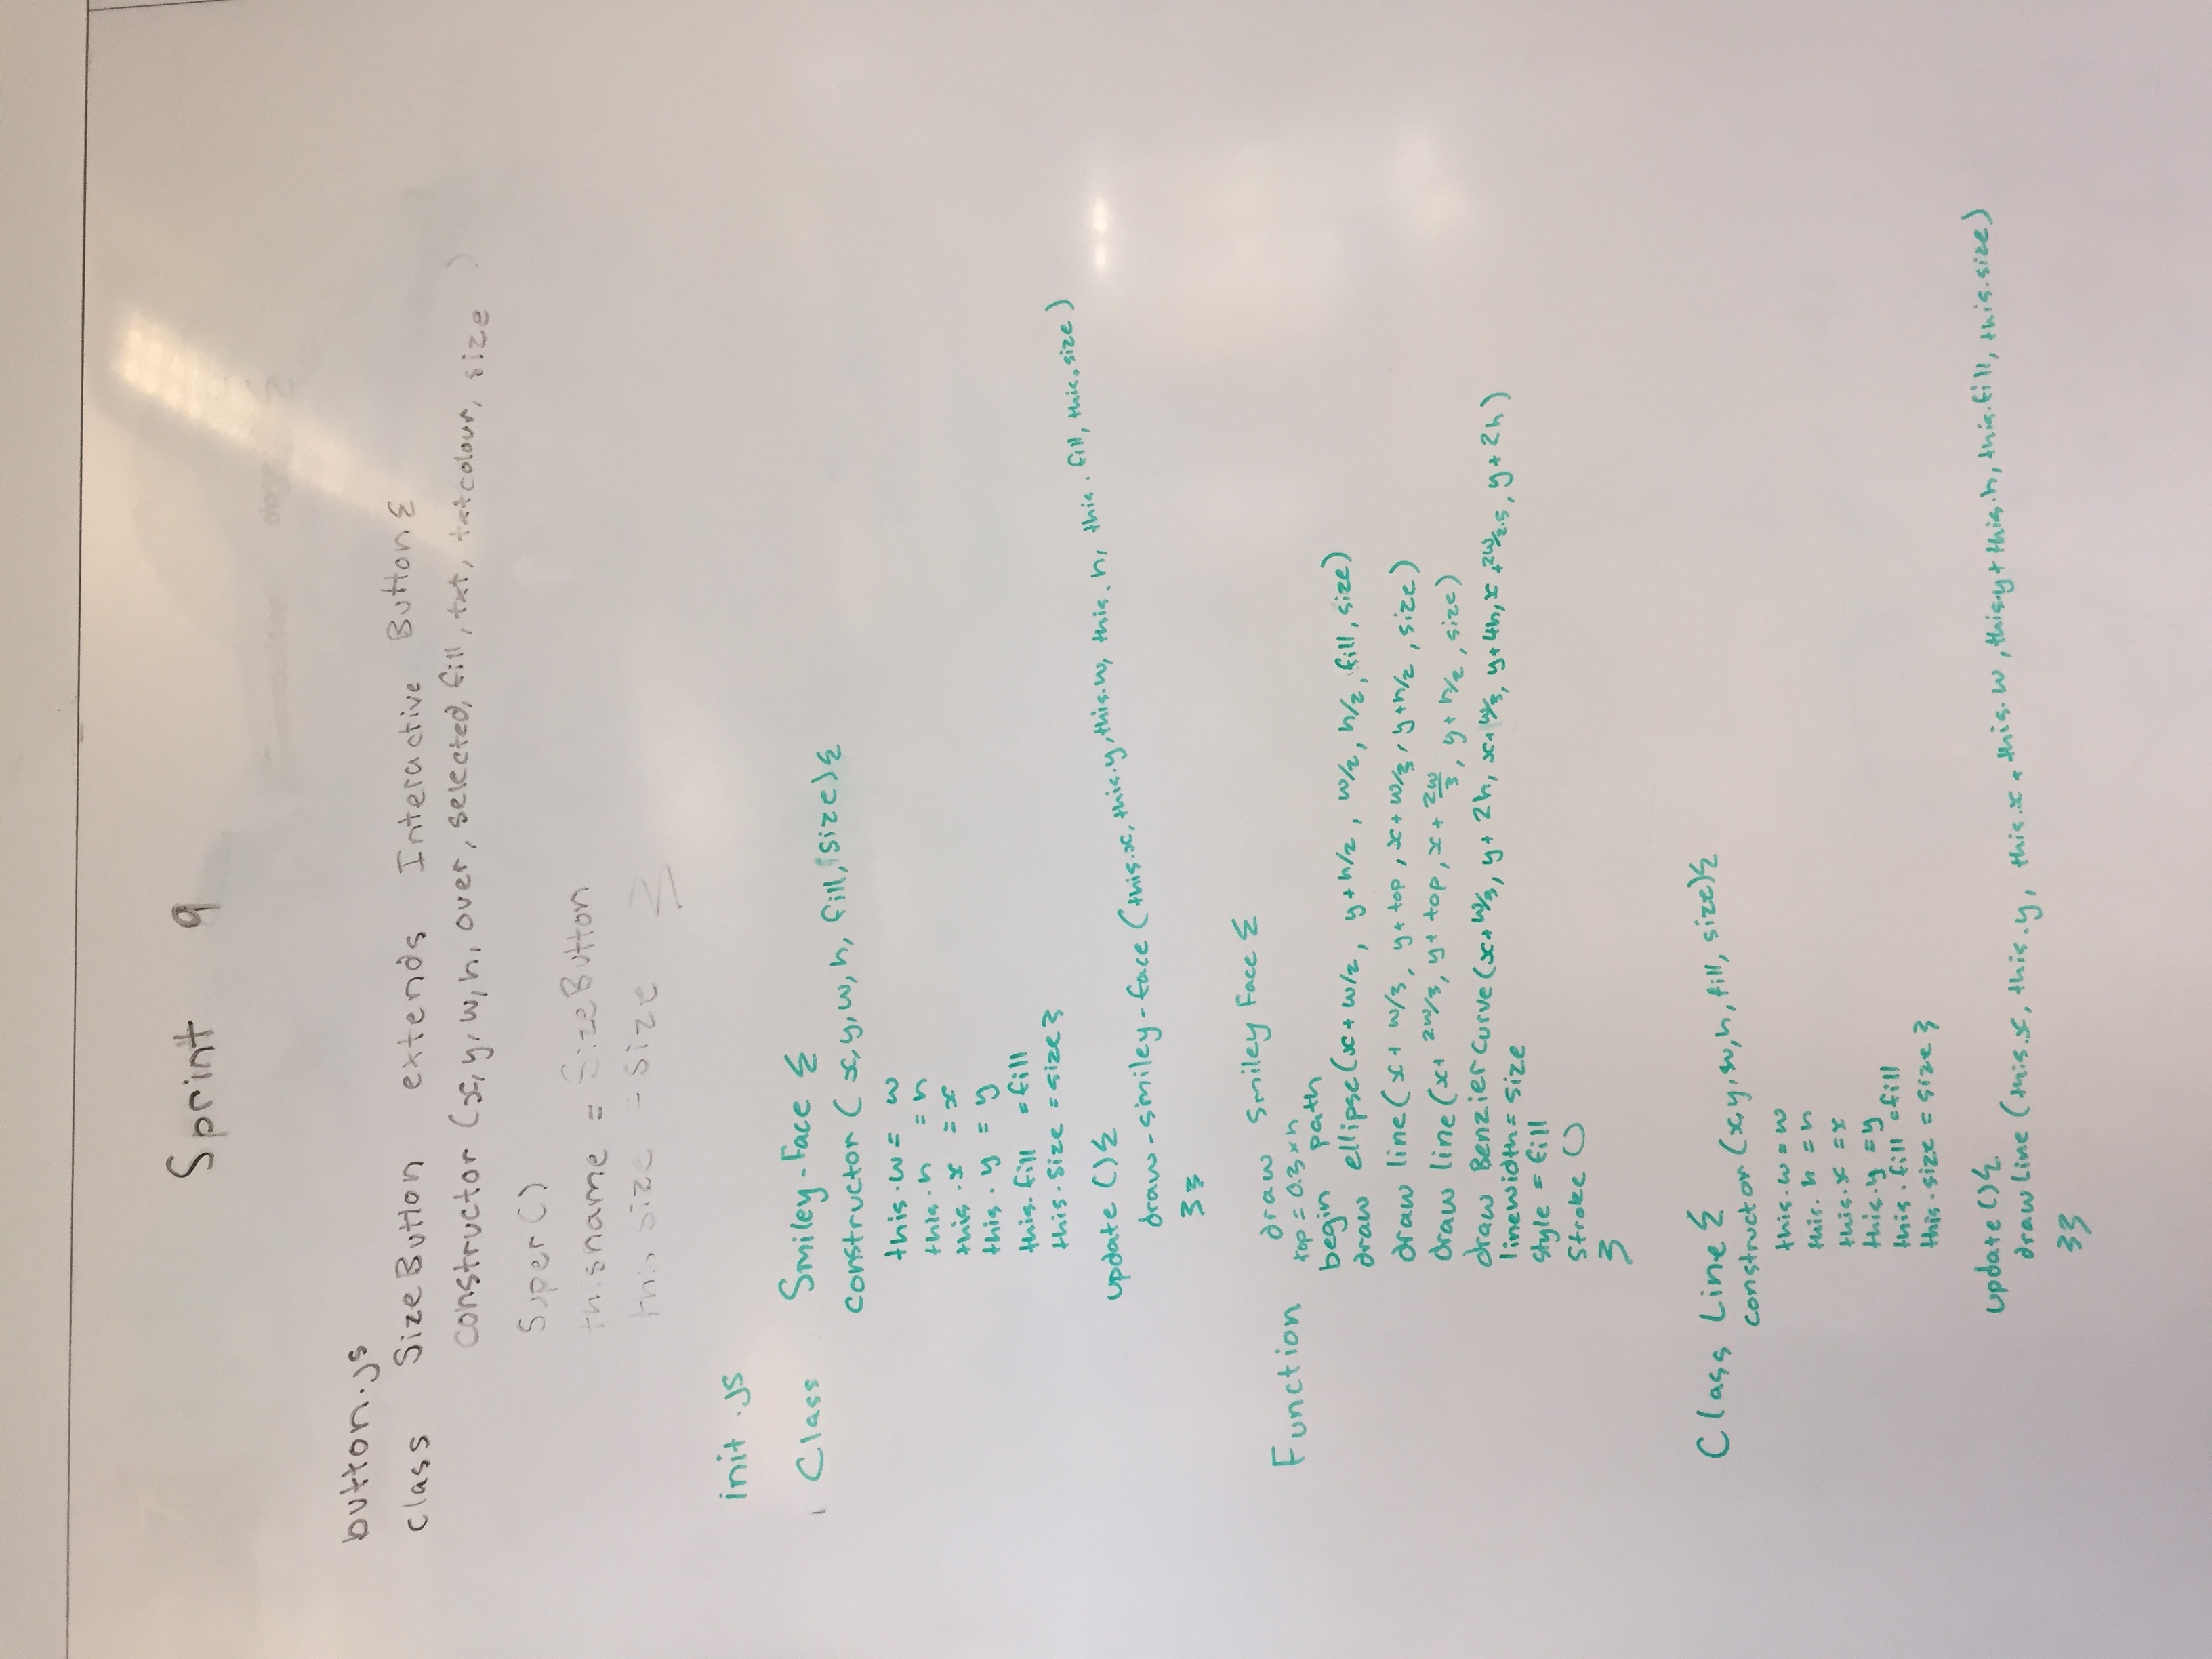 Sprint 9
button.js
class SizeButton extends Interactive Button {
constructor (x, y, w, h, over, selected, fill, txt, txtcolour, size )
Super()
this name = SizeButton
this size = size }
init .js
Class Smiley-Face {
constructor ( x, y, w, h, fill, size) {
this.w = w
this.h = h
this.x = x
this.y = y
this.fill = fill
this.size = size }
update () {
draw-smiley-face (this.x, this.y, this.w, this.h, this.fill, this.size)
} }
Function draw Smiley Face {
top = 0.3 x h
begin path
draw ellipse(x + w/2, y + h/2, w/2, h/2, fill, size)
draw line(x + w/3, y + top, x + w/3, y + h/2, size)
draw line(x + 2w/3, y + top, x + 2w/3, y + h/2, size)
draw Benzier curve (x + w/3, y + 2h, x + w/3, y + 4h, x + 2w/2.5, y + 2h)
linewidth = size
style = fill
Stroke ()
}
Class Line {
constructor (x, y, w, h, fill, size) {
this.w = w
this.h = h
this.x = x
this.y = y
this.fill = fill
this.size = size }
update () {
draw Line (this.x, this.y, this.x + this.w, this.y + this.h, this.fill, this.size)
} }